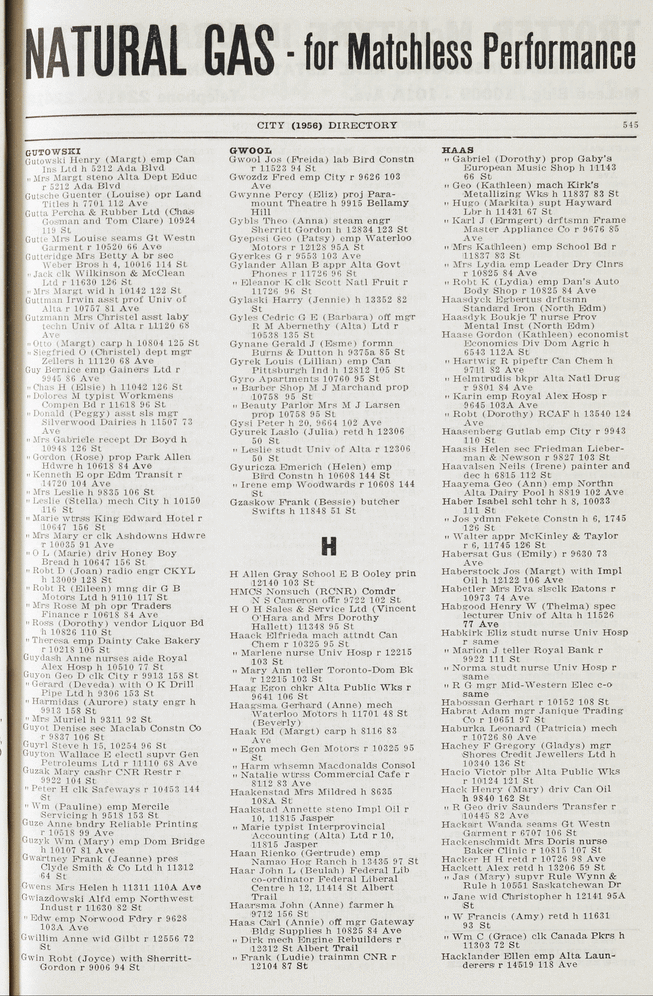 NATURAL GAS - for Matchless Performance
CITY (1956) DIRECTORY
545
GUTOWSKI
Gutowski Henry (Margt) emp Can
Ins Ltd h 5212 Ada Blvd
" Mrs Margt steno Alta Dept Educ
r 5212 Ada Blvd
Gutsche Guenter (Louise) opr Land
Titles h 7701 112 Ave
Gutta Percha & Rubber Ltd (Chas
Gosman and Tom Clare) 10924
119 St
Gutte Mrs Louise seams Gt Westn
Garment r 10520 66 Ave
Gutteridge Mrs Betty A br sec
Weber Bros h 4, 10016 114 St
" Jack clk Wilkinson & McClean
Ltd r 11630 126 St
" Mrs Margt wid h 10142 122 St
Guttman Irwin asst prof Univ of
Alta r 10757 81 Ave
Gutzmann Mrs Christel asst laby
techn Univ of Alta r 11120 68
Ave
" Otto (Margt) carp h 10804 125 St
" Siegfried O (Christel) dept mgr
Zellers h 11120 68 Ave
Guy Bernice emp Gainers Ltd r
9945 86 Ave
" Chas H (Elsie) h 11042 126 St
" Dolores M typist Workmens
Compen Bd r 11618 96 St
" Donald (Peggy) asst sls mgr
Silverwood Dairies h 11507 73
Ave
" Mrs Gabriele recept Dr Boyd h
10948 126 St
" Gordon (Rose) prop Park Allen
Hdwre h 10618 84 Ave
" Kenneth E opr Edm Transit r
14720 104 Ave
" Mrs Leslie h 9835 106 St
" Leslie (Stella) mech City h 10150
116 St
" Marie wtrss King Edward Hotel r
10647 156 St
" Mrs Mary cr clk Ashdowns Hdwre
r 10035 91 Ave
" O L (Marie) driv Honey Boy
Bread h 10647 156 St
" Robt D (Joan) radio engr CKYL
h 13009 128 St
" Robt H (Eileen) mng dir G B
Motors Ltd h 9110 117 St
" Mrs Rose M ph opr Traders
Finance r 10618 84 Ave
" Ross (Dorothy) vendor Liquor Bd
h 10826 110 St
" Theresa emp Dainty Cake Bakery
r 10218 105 St
Guydash Anne nurses aide Royal
Alex Hosp h 10510 77 St
Guyon Geo D clk City r 9913 158 St
" Gerard (Deveda) with O K Drill
Pipe Ltd h 9306 153 St
" Harmidas (Aurore) staty engr h
9913 158 St
" Mrs Muriel h 9311 92 St
Guyot Denise sec Maclab Constn Co
r 9837 106 St
Guyrl Steve h 15, 10254 96 St
Guyton Wallace E electl supvr Gen
Petroleums Ltd r 11110 68 Ave
Guzak Mary cashr CNR Restr r
9922 104 St
" Peter H clk Safeways r 10453 144
St
" Wm (Pauline) emp Mercile
Servicing h 9518 153 St
Guze Anne bndry Reliable Printing
r 10518 99 Ave
Guzyk Wm (Mary) emp Dom Bridge
h 10107 81 Ave
Gwartney Frank (Jeanne) pres
Clyde Smith & Co Ltd h 11312
64 St
Gwens Mrs Helen h 11311 110A Ave
Gwiazdowski Alfd emp Northwest
Indust r 11630 82 St
" Edw emp Norwood Fdry r 9628
103A Ave
Gwillim Anne wid Gilbt r 12556 72
St
Gwin Robt (Joyce) with Sherritt-
Gordon r 9006 94 St
GWOOL
Gwool Jos (Freida) lab Bird Constn
r 11523 94 St
Gwozdz Fred emp City r 9626 103
Ave
Gwynne Percy (Eliz) proj Para-
mount Theatre h 9915 Bellamy
Hill
Gybls Theo (Anna) steam engr
Sherritt Gordon h 12834 123 St
Gyepesi Geo (Patsy) emp Waterloo
Motors r 12128 95A St
Gyerkes G r 9553 103 Ave
Gylander Allan B appr Alta Govt
Phones r 11726 96 St
" Eleanor K clk Scott Natl Fruit r
11726 96 St
Gylaski Harry (Jennie) h 13352 82
St
Gyles Cedric G E (Barbara) off mgr
R M Abernethy (Alta) Ltd r
10538 135 St
Gynane Gerald J (Esme) formn
Burns & Dutton h 9375a 85 St
Gyrek Louis (Lillian) emp Can
Pittsburgh Ind h 12812 105 St
Gyro Apartments 10760 95 St
" Barber Shop M J Marchand prop
10758 95 St
" Beauty Parlor Mrs M J Larsen
prop 10758 95 St
Gysi Peter h 20, 9664 102 Ave
Gyurek Laslo (Julia) retd h 12306
50 St
" Leslie studt Univ of Alta r 12306
50 St
Gyuricza Emerich (Helen) emp
Bird Constn h 10608 144 St
" Irene emp Woodwards r 10608 144
St
Gzaskow Frank (Bessie) butcher
Swifts h 11848 51 St
H
H Allen Gray School E B Ooley prin
12140 103 St
HMCS Nonsuch (RCNR) Comdr
N S Cameron offr 9722 102 St
H O H Sales & Service Ltd (Vincent
O'Hara and Mrs Dorothy
Hallett) 11348 95 St
Haack Elfrieda mach attndt Can
Chem r 10325 95 St
" Marlene nurse Univ Hosp r 12215
103 St
" Mary Ann teller Toronto-Dom Bk
r 12215 103 St
Haag Egon chkr Alta Public Wks r
9641 106 St
Haagsma Gerhard (Anne) mech
Waterloo Motors h 11701 48 St
(Beverly)
Haak Ed (Margt) carp h 8116 83
Ave
" Egon mech Gen Motors r 10325 95
St
" Harm whsemn Macdonalds Consol
" Natalie wtrss Commercial Cafe r
8112 83 Ave
Haakenstad Mrs Mildred h 8635
108A St
Haakstad Annette steno Impl Oil r
10, 11815 Jasper
" Marie typist Interprovincial
Accounting (Alta) Ltd r 10,
11815 Jasper
Haan Rienko (Gertrude) emp
Namao Hog Ranch h 13435 97 St
Haar John L (Beulah) Federal Lib
co-ordinator Federal Liberal
Centre h 12, 11414 St Albert
Trail
Haarsma John (Anne) farmer h
9712 156 St
Haas Carl (Annie) off mgr Gateway
Bldg Supplies h 10825 84 Ave
" Dirk mech Engine Rebuilders r
12312 St Albert Trail
" Frank (Ludie) trainmn CNR r
12104 87 St
HAAS
" Gabriel (Dorothy) prop Gaby's
European Music Shop h 11143
66 St
" Geo (Kathleen) mach Kirk's
Metallizing Wks h 11837 83 St
" Hugo (Markita) supt Hayward
Lbr h 11431 67 St
" Karl J (Ermgert) drftsmn Frame
Master Appliance Co r 9676 85
Ave
" Mrs Kathleen) emp School Bd r
11837 83 St
" Mrs Lydia emp Leader Dry Clnrs
r 10825 84 Ave
" Robt K (Lydia) emp Dan's Auto
Body Shop r 10825 84 Ave
Haasdyck Egbertus drftsmn
Standard Iron (North Edm)
Haasdyk Boukje T nurse Prov
Mental Inst (North Edm)
Haase Gordon (Kathleen) economist
Economics Div Dom Agric h
6543 112A St
" Hartwig R pipeftr Can Chem h
9711 82 Ave
" Helmtrudis bkpr Alta Natl Drug
r 9801 84 Ave
" Karin emp Royal Alex Hosp r
9645 103A Ave
" Robt (Dorothy) RCAF h 13540 124
Ave
Haasenberg Gutlab emp City r 9943
110 St
Haasis Helen sec Friedman Lieber-
man & Newson r 9827 103 St
Haavalsen Neils (Irene) painter and
dec h 6815 112 St
Haayema Geo (Ann) emp Northn
Alta Dairy Pool h 8819 102 Ave
Haber Isabel schl tchr h 8, 10033
111 St
" Jos ydmn Fekete Constn h 6, 1745
126 St
" Walter appr McKinley & Taylor
r 6, 11745 126 St
Habersat Gus (Emily) r 9630 73
Ave
Haberstock Jos (Margt) with Impl
Oil h 12122 106 Ave
Habetler Mrs Eva slsclk Eatons r
10973 74 Ave
Habgood Henry W (Thelma) spec
lecturer Univ of Alta h 11526
77 Ave
Habkirk Eliz studt nurse Univ Hosp
r same
" Marion J teller Royal Bank r
9922 111 St
" Norma studt nurse Univ Hosp r
same
" R G mgr Mid-Western Elec c-o
same
Habossan Gerhart r 10152 108 St
Habrat Adam mgr Janique Trading
Co r 10651 97 St
Haburka Leonard (Patricia) mech
r 10726 80 Ave
Hachey F Gregory (Gladys) mgr
Shores Credit Jewellers Ltd h
10340 136 St
Hacio Victor plbr Alta Public Wks
r 10124 121 St
Hack Henry (Mary) driv Can Oil
h 9840 162 St
" R Geo driv Saunders Transfer r
10445 82 Ave
Hackart Wanda seams Gt Westn
Garment r 6707 106 St
Hackenschmidt Mrs Doris nurse
Baker Clinic r 10815 107 St
Hacker H H retd r 10726 98 Ave
Hackett Alex retd r 13206 59 St
" Jas (Mary) supvr Rule Wynn &
Rule h 10551 Saskatchewan Dr
" Jane wid Christopher h 12141 95A
St
" W Francis (Amy) retd h 11631
93 St
" Wm C (Grace) clk Canada Pkrs h
11303 72 St
Hacklander Ellen emp Alta Laun-
derers r 14519 118 Ave